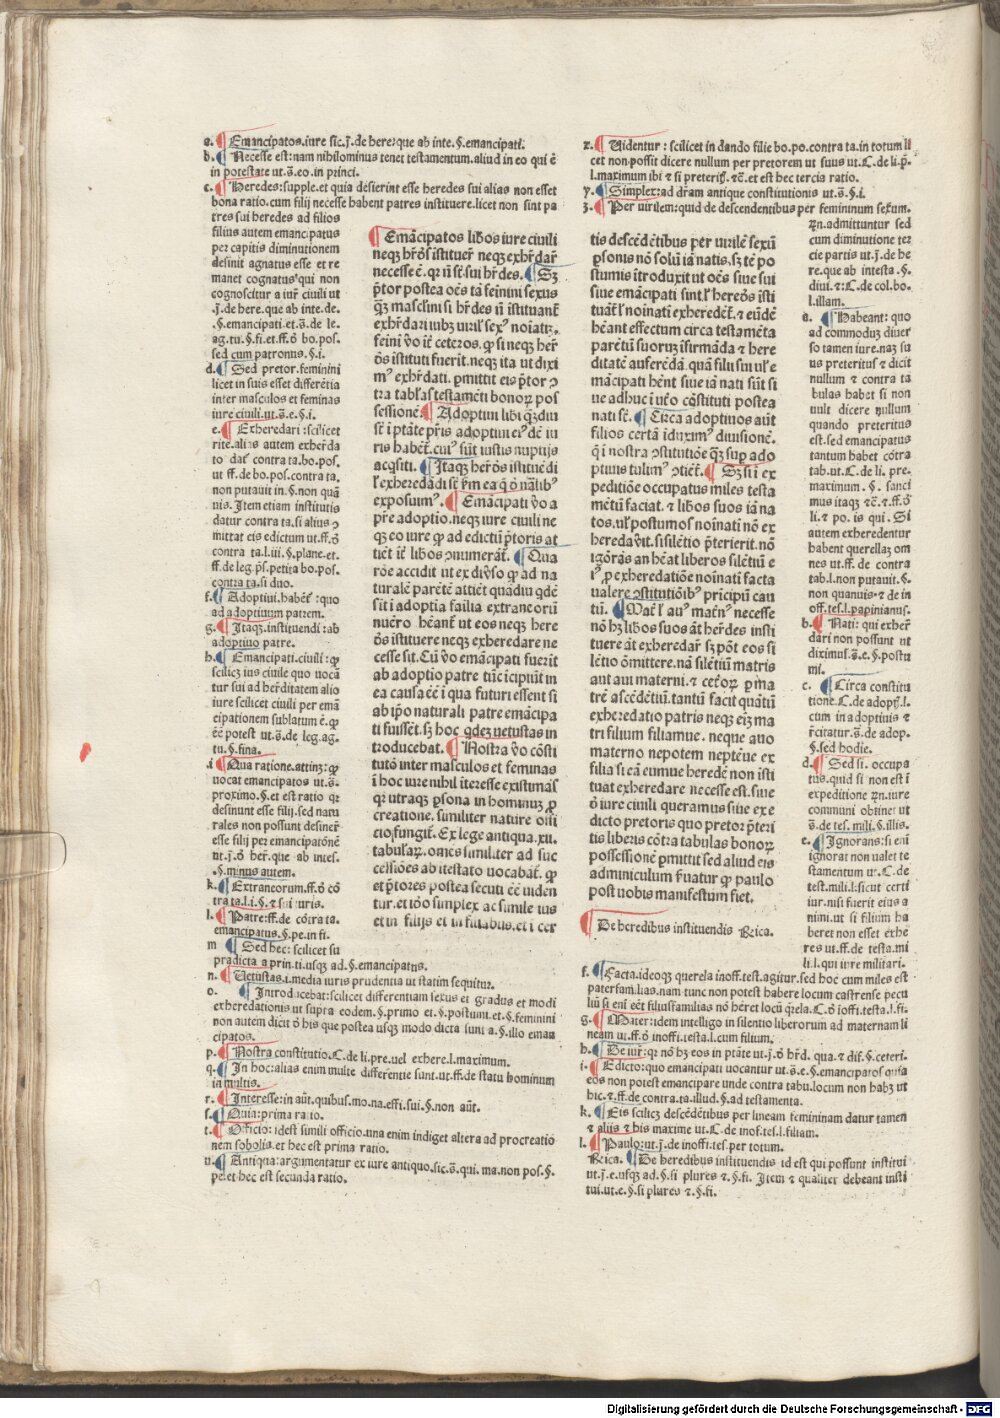 a. Emancipatos.iure sic.j̄.de here:que ab inte.§.emancipati.
b. Necesse est:nam nihilominus tenet testamentum.aliud in eo qui ē
in potestate ut.s̄.eo.in princi.
c. Heredes:supple.et quia desierint esse heredes sui alias non esset
bona ratio.cum filij necesse habent patres instituere.licet non sint pa
tres sui heredes ad filios
filius autem emancipatus
per capitis diminutionem
desinit agnatus esse et re
manet cognatus qui non
cognoscitur a iur̄ ciuili ut
.j̄.de here.que ab inte.de.
.§.emancipati.et.s̄.de le.
ag.tu.§.fi.et.ff.ō bo.pos.
sed cum patronus.§.i.
d. Sed pretor.feminini
licet in suis esset differētia
inter masculos et feminas
iure ciuili.ut.s̄.e.§.i.
e. Exheredari:scilicet
rite.alias autem exher̄da
to dat̄ contra ta.bo.pos.
ut ff.de bo.pos.contra ta.
non putauit in.§.non quā
uis.Item etiam institutis
datur contra ta.si alius ↄ
mittat eis edictum ut.ff.ō
contra ta.l.iii.§.plane.et.
ff.de leg.pr̄s.petita bo.pos.
contra ta.si duo.
f. Adoptiui.habēt̄:quo
ad adoptiuum patrem.
g. Itaqȝ.instituendi:ab
adoptiuo patre.
h. Emancipati.ciuili:qꝫ
scilicȝ ius ciuile quo uocā
tur sui ad her̄ditatem alio
iure scilicet ciuili per emā
cipationem sublatum ē.qꝫ
eē potest ut.s̄.de leg.ag.
tu.§.fina.
i Qua ratione.attinȝ:qꝫ
uocat emancipatos ut.s̄.
proximo.§.et est ratio qr
desinunt esse filij.sed natu
rales non possunt desiner̄
esse filij per emancipatōnē
ut.j̄.ō her̄.que ab intes.
.§.minus autem.
k. Extraneorum.ff.ō cō
tra ta.l.i.§.⁊ sui iuris.
l. Patre:ff.de cōtra ta.
emancipatus.§.pe.in fi.
m Sed hec:scilicet su
pradicta a prin.ti.usqȝ ad.§.emancipatus.
n. Uetustas.i.media iuris prudentia ut statim sequitur.
o. Introducebat:scilicet differentiam sexus et gradus et modi
exheredationis ut supra eodem.§.primo et.§.postumi.et.§.feminini
non autem dicit ō his que postea usqȝ modo dicta sunt a.§.illo eman
cipatos.
p. Nostra constitutio.C.de li.pre.uel exhere.l.maximum.
q. In hoc:alias enim multe differentie sunt.ut.ff.de statu hominum
in multis.
r. Interesse:in aūt.quibus.mo.na.effi.sui.§.non aūt.
s. Quia:prima ratio.
t. Officio:idest simili officio.una enim indiget altera ad procreatio
nem sobolis.et hec est prima ratio.
u. Antiqua:argumentatur ex iure antiquo.sic.s̄.qui.ma.non pos.§.
pe.et hec est secunda ratio.
Emācipatos lib̄os iure ciuili
neqȝ hr̄ōs īstituer̄ neqȝ exhr̄dar̄
necesse ē.qr nī sūt sui hr̄des. Sȝ
p̄tor postea oēs tā feīnini sexus
qȝ mascl̄ini si hr̄des nī īstituant̄
exhr̄dari iubȝ uiril' sexꝰ noīatȝ.
feīni v̄o īt̄ ceteros. qꝫ si neqȝ her̄
ōs īstituti fuerīt.neqȝ ita ut dixi
mꝰ exhr̄dati. pmittit eis p̄tor ↄ
tra tabl'as testamēti bonor̄ pos
sessionē. Adoptiui lib̄i qȝdiu
sūt ī ptāte pr̄is adoptiui eiꝰdē iu
ris habēt̄.cuiꝰ sūt iustis nuptijs
acqsiti. Itaqȝ her̄ōs īstituēdi
l' exheredādi sūt s̄m ea q̄ ō nāl'ibꝰ
exposuimꝰ. Emācipati v̄o a
pr̄e adoptiuo.neqȝ iure ciuili ne
qȝ eo iure qꝫ ad edictū p̄toris at
tīet īt̄ lib̄os ↄnumerāt̄. Qua
rōe accidit ut ex diūso qꝫ ad na
turalē parētē attīet quādiu qdē
sīt ī adoptīa failīa extraneorū
nūero hēant̄ ut eos neqȝ here
ōs īstituere neqȝ exheredare ne
cesse sit.Cū v̄o emācipati fuerīt
ab adoptiuo patre tūc īcipiūt in
ea causa eē ī qua futuri essent si
ab ip̄o naturali patre emācipa
ti fuissēt.sȝ hoc qdeȝ uetustas in
troducebat. Nostra v̄o cōsti
tutō inter masculos et feminas
ī hoc iure nihil īteresse existimās
qr utraqȝ psona in hominuȝ p
creatione.similiter nature offi
cio fungit̄.Ex lege antiqua.xii.
tabular̄.om̄es similiter ad suc
cessiōes ab ītestato uocabāt̄.qꝫ
et p̄tores postea secuti eē uiden
tur.et iōo simplex ac simile ius
et in filijs et in filiabus.et ī cet
tis descēdētibus per uirilē sexū
psonis nō solū iā natis.sȝ tē po
stumis ītroduxit ut oēs siue sui
siue emācipati sint.l' hereōs īsti
tuāt̄ l' noīnati exheredēt̄.⁊ eūdē
hēant effectum circa testamēta
parētū suoruȝ īfirmāda ⁊ here
ditatē auferēda.quā filii sui ul' e
mācipati hēnt siue iā nati sūt si
ue adhuc ī ut̄o cōstituti postea
nati sūt. Circa adoptiuos aūt
filios certā īduximꝰ diuisionē.
q̄ ī nostra ↄstitutiōe qȝ sup ado
ptiuis tulimꝰ ↄtīet̄. Sȝ si ī ex
peditiōe occupatus miles testa
mētū faciat.⁊ lib̄os suos iā na
tos.ul' postumos noīnati nō ex
heredauīt.sȝ silētio p̄terierit.nō
ignōrās an hēat liberos silētiū e
iꝰ p exheredatiōe noīnatī facta
ualere ↄstitutiōibꝰ prīcipū cau
tū. Mat̄ l' auꝰ mat̄nꝰ necesse
nō hȝ lib̄os suos āt her̄des insti
tuere āt exheredar̄ sȝ pōt eos si
lētio ōmittere.nā silētiū matris
aut aui materni.⁊ cet̄or̄ p ma
trē ascēdētiū.tantū facit quātū
exheredatio patris neqȝ eīȝ ma
tri filium filiamue. neque auo
materno nepotem neptēue ex
filia si eā eumue heredē non īsti
tuat exheredare necesse est.siue
ō iure ciuili queramus siue ex e
dicto pretoris quo pretor p̄teri
tis liberis cōtra tabulas bonor̄
possessionē pmittit sed aliud eis
adminiculum s̄uatur qꝫ paulo
post uobis manifestum fiet.
De heredibus instituendis Rica.
x. Uidentur:scilicet in dando filie bo.po.contra ta.in totum li
cet non possit dicere nullum per pretorem ut suus ut.C.de li.p̄.
l.maximum ibi ⁊ si preteris̄.⁊c̄.et est hec tercia ratio.
y. Simplex:ad dr̄am antique constitutionis ut.s̄.§.i.
z. Per uirilem:quid de descendentibus per femininum sexum.
Rn̄.admittuntur sed
cum diminutione ter
cie partis ut.j̄.de he
re.que ab intesta.§.
diui.⁊:C.de col.bo.
l.illam.
a. Habeant: quo
ad commoduȝ diuer
so tamen iure.naȝ su
us preteritus ⁊ dicit
nullum ⁊ contra ta
bulas habet si non
uult dicere nullum
quando preteritus
est.sed emancipatus
tantum habet cōtra
tab.ut.C.de li. pre.
maximum. §. sanci
mus itaqȝ ⁊c̄.⁊.ff.ō
li.⁊ po. is qui. Si
autem exheredentur
habent querellaȝ om
nes ut.ff.de contra
tab.l.non putauit.§.
non quanuis.⁊ de in
off.tes.l.papinianus.
b. Nati: qui exher̄
dari non possunt ut
diximus.s̄.e.§.postu
mi.
c. Circa constitu
tione.C.de adopt̄.l.
cum in adoptiuis ⁊
rēcitatur.s̄.de adop.
§.sed hodie.
d. Sed si. occupa
tus.quid si non est ī
expeditione Rn̄.iure
communi obtinet ut
s̄.de tes.mili.§.illis.
e. Ignorans:si enī
ignorat non ualet te
stamentum ut.C.de
test.mili.l.sicut certi
iur.nisi fuerit eius a
nimi.ut si filium ha
beret non esset exhe
res ut.ff.de testa.mi
li.l.qui iure militari.
f. Facta.ideoqȝ querela inoff.test.agitur.sed hoc cum miles est
paterfam.lias.nam tunc non potest habere locum castrense pecu
liū si enī eēt filiusfamilias nō her̄et locū q̄rela.C.ō ioffi.testa.l.fi.
g. Mater:idem intelligo in silentio liberorum ad maternam li
neam ut.ff.ō inoffi.testa.l.cum filium.
h. De iur̄:qr nō hȝ eos in ptāte ut.j̄.ō hr̄d. qua.⁊ dif.§.ceteri.
i. Edicto:quo emancipati uocantur ut.s̄.e.§.emancipatos quia
eos non potest emancipare unde contra tabu.locum non habȝ ut
hic.⁊.ff.de contra.ta.illud.§.ad testamenta.
k. Eis scilicȝ descēdētibus per lineam femininam datur tamen
⁊ aliis ⁊ his maxime ut.C.de inof.tes.l.filiam.
l. Paulo:ut.j̄.de inoffi.tes.per totum.
Rica. De heredibus instituendis id est qui possunt institui
ut.j̄.e.usqȝ ad.§.si plures ⁊.§.fi. Item ⁊ qualiter debeant insti
tui.ut.e.§.si plures ⁊.§.fi.
Digitalisierung gefördert durch die Deutsche Forschungsgemeinschaft - DFG